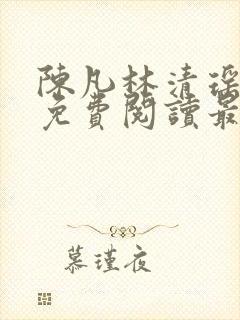 陳凡林清瑤
免費閱讀最
慕瑾夜